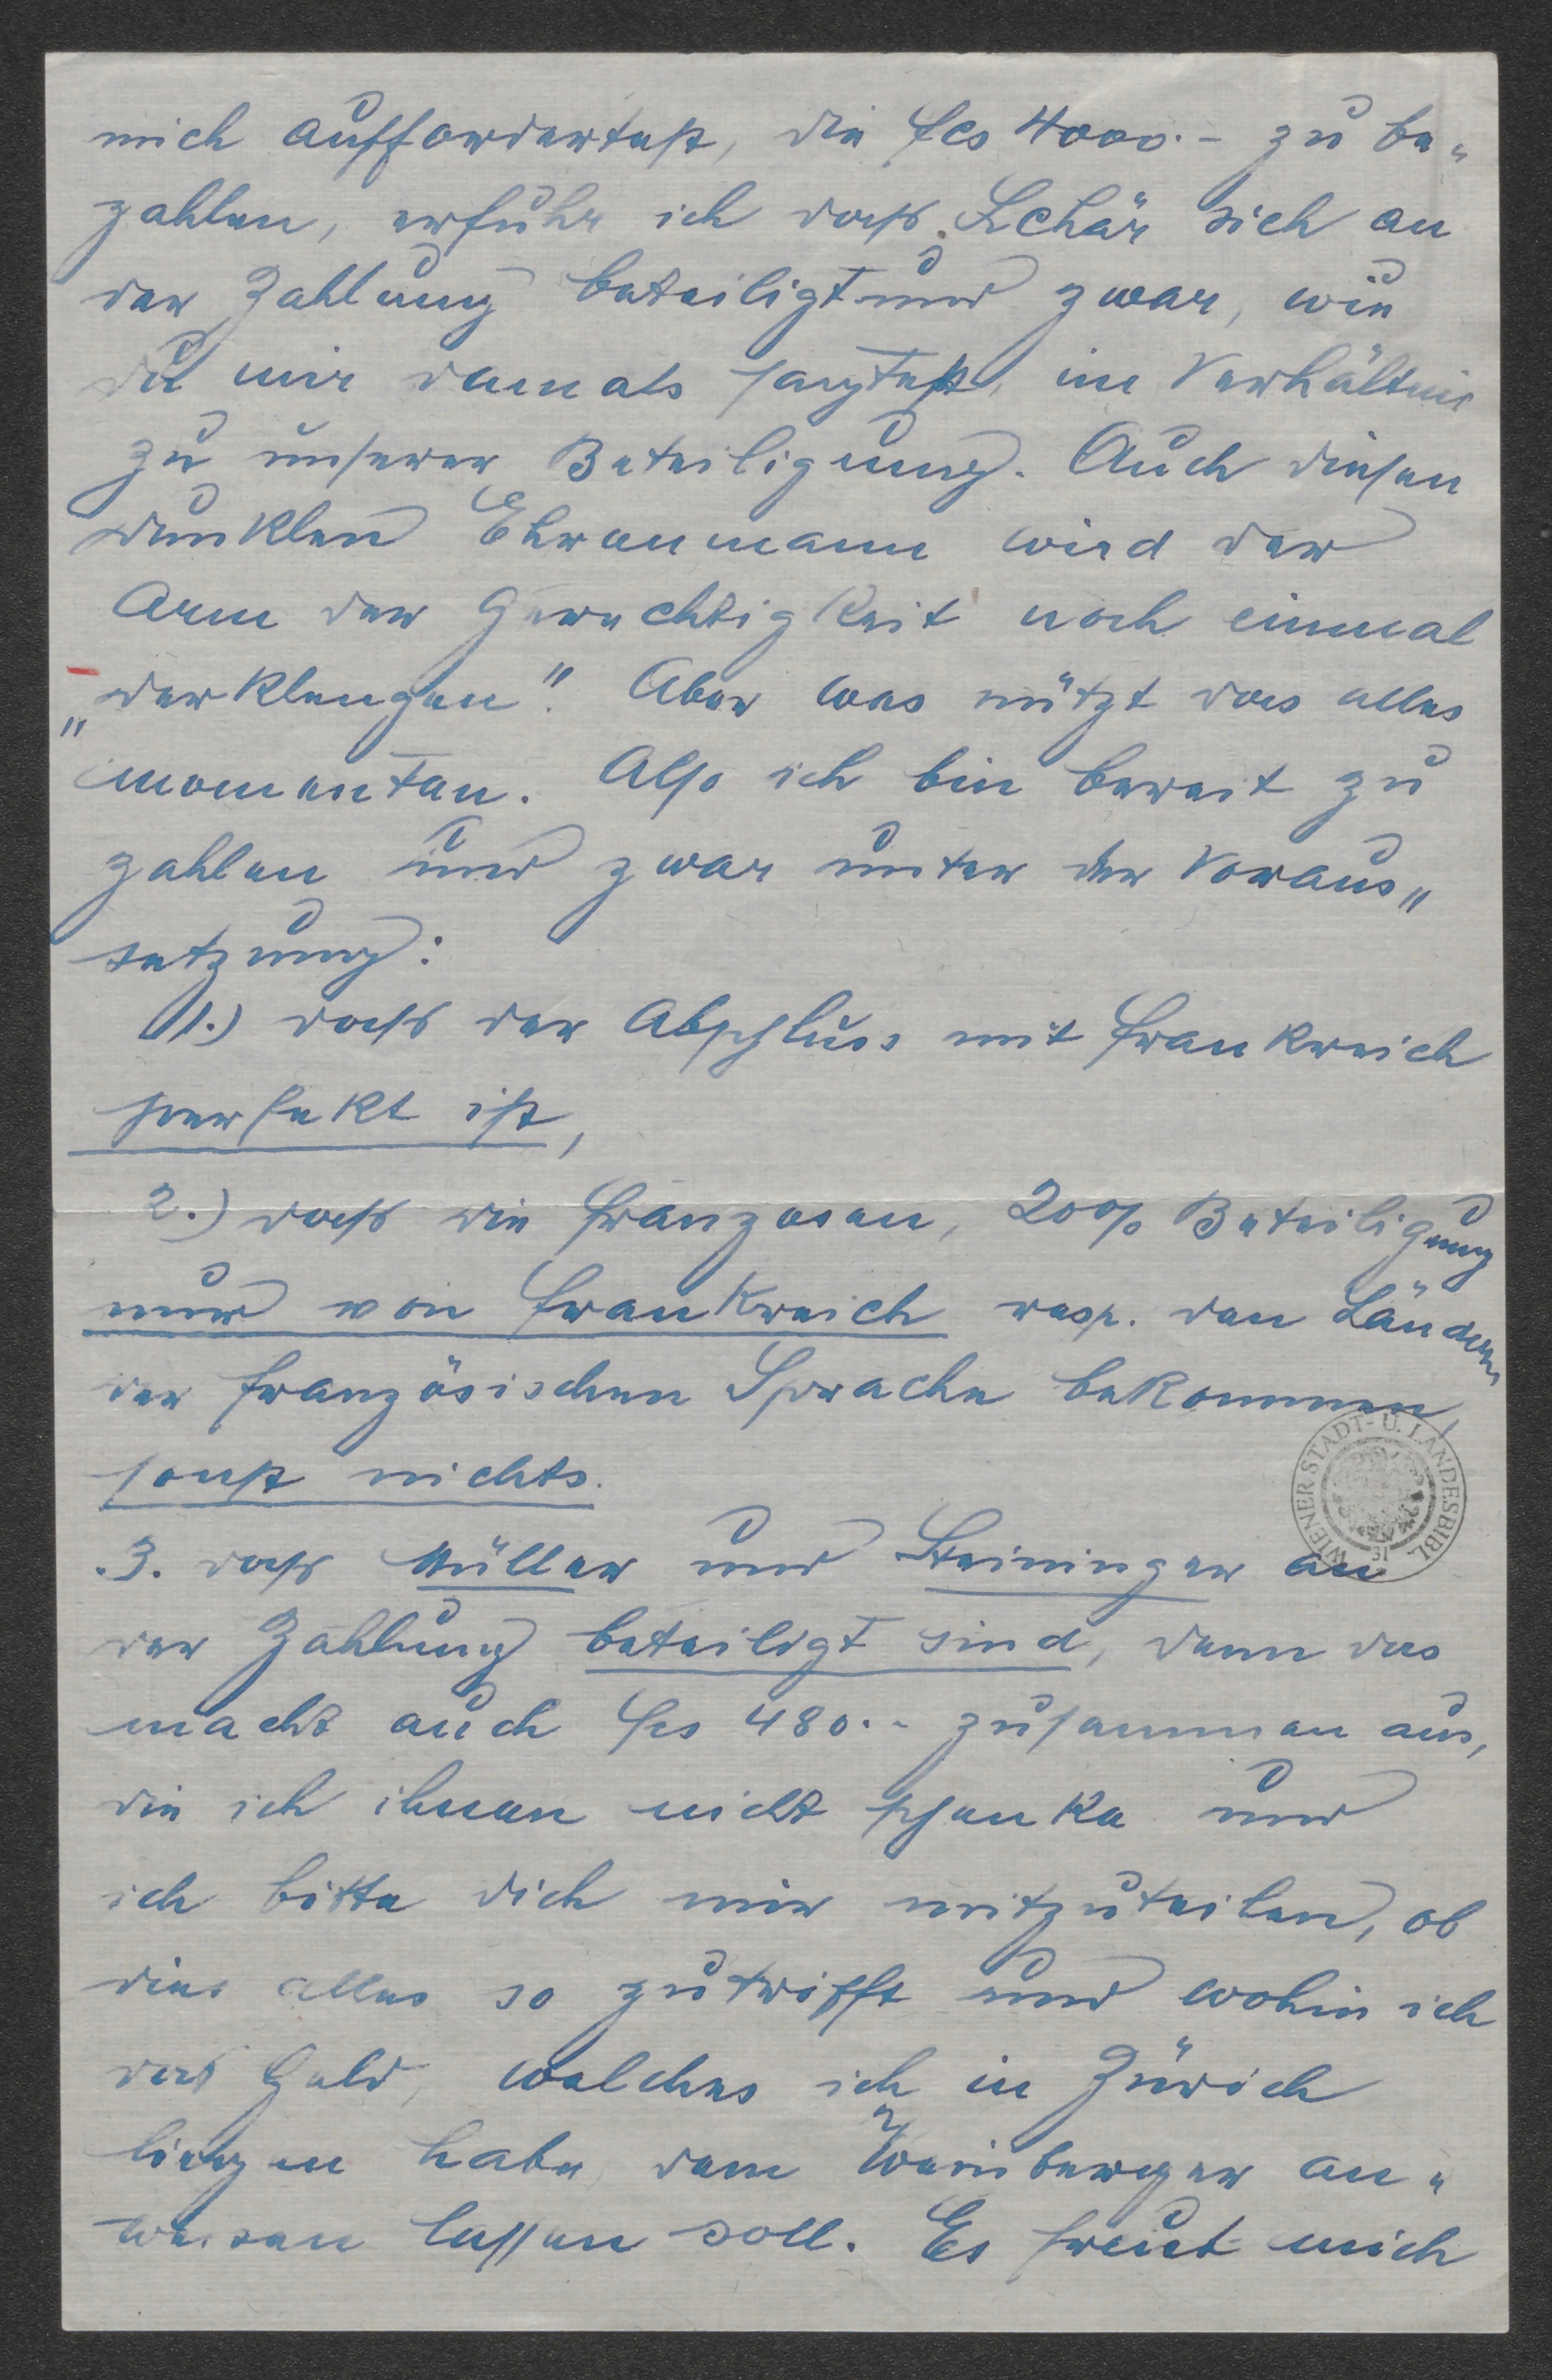 mich auffordertest, die fcs 4000.- zu be-
zahlen, erfuhr ich dass Lehár sich an
der Zahlung beteiligt und zwar, wie
Du mir damals sagtest, im Verhältnis
zu unserer Beteiligung. Auch diesen
dunklen Ehrenmann wird der
Arm der Gerechtigkeit noch einmal
„derklengen". Aber was nützt das alles
momentan. Also ich bin bereit zu
zahlen und zwar unter der Voraus-
setzung:
1.) dass der Abschluss mit Frankreich
perfekt ist,
2.) dass die Franzosen, 20% Beteiligung
nur von Frankreich resp. den Ländern
der französischen Sprache bekommen,
sonst nichts.
3. dass Müller und Steininger an
der Zahlung beteiligt sind, denn das
macht auch fcs 480.- zusammen aus,
die ich ihnen nicht schenke und
ich bitte Dich mir mitzuteilen, ob
dies alles so zutrifft und wohin ich
das Geld, welches ich in Zürich
liegen habe, dem Weinberger an-
weisen lassen soll. Es freut mich
WIENER STADT- U. LANDESBIBL.
31